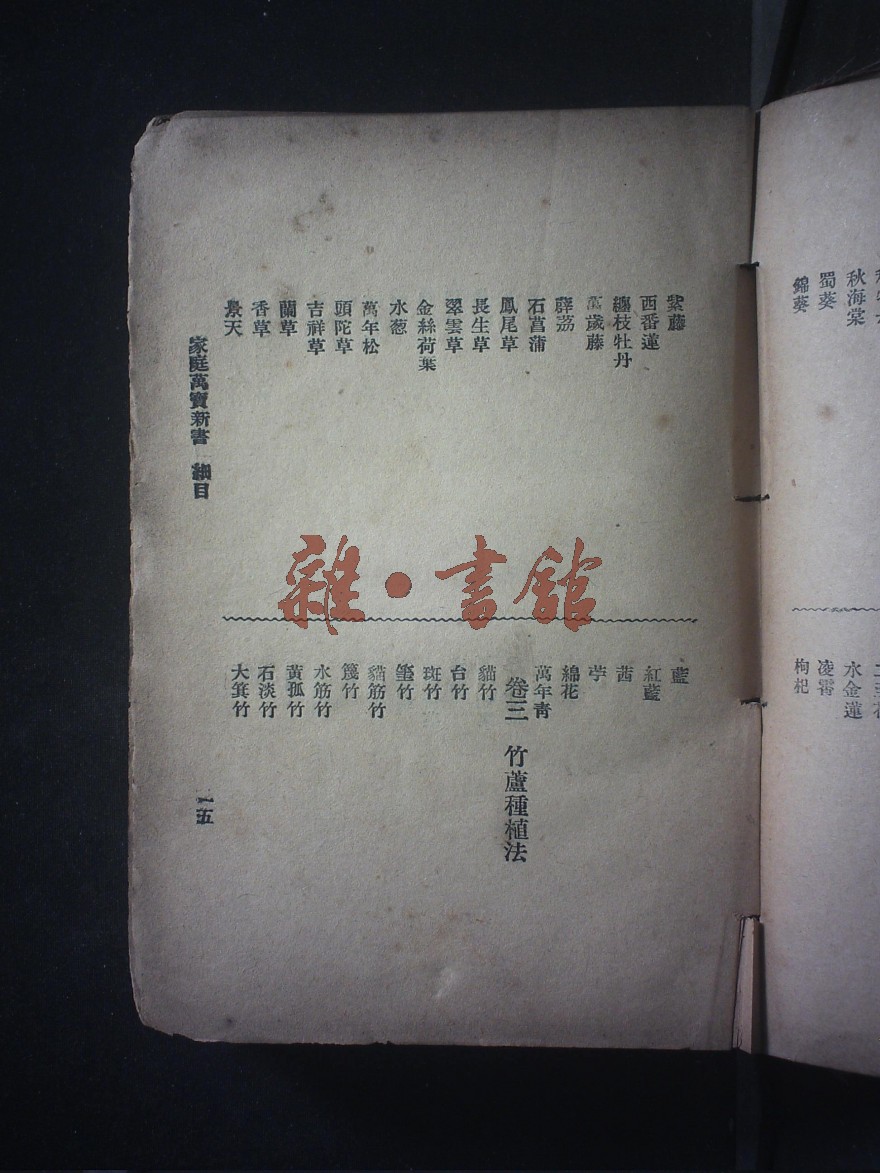 錦葵
蜀葵
秋海棠
枸杞
凌霄
水金蓮
紫藤
西番蓮
纏枝牡丹
萬歲藤
薜荔
石菖蒲
鳳尾草
長生草
翠雲草
金絲荷葉
水葱
萬年松
頭陀草
吉祥草
蘭草
香草
景天
藍
紅藍
茜
苧
綿花
萬年青
卷三 竹蘆種植法
貓竹
台竹
斑竹
筀竹
貓筋竹
篾竹
水筋竹
黃孤竹
石淡竹
大箕竹
家庭萬寶新書 細目
一五
雜·書館